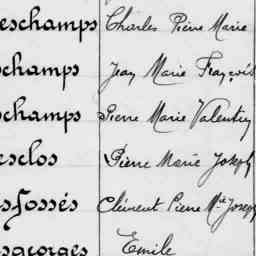 eschamps Charles Pierre Marie
schamps Jean Marie François
schamps Pierre Marie Valentin
esclos Pierre Marie Joseph
sfossés Clément Pierre Mie Joseph
sgeorges Emile